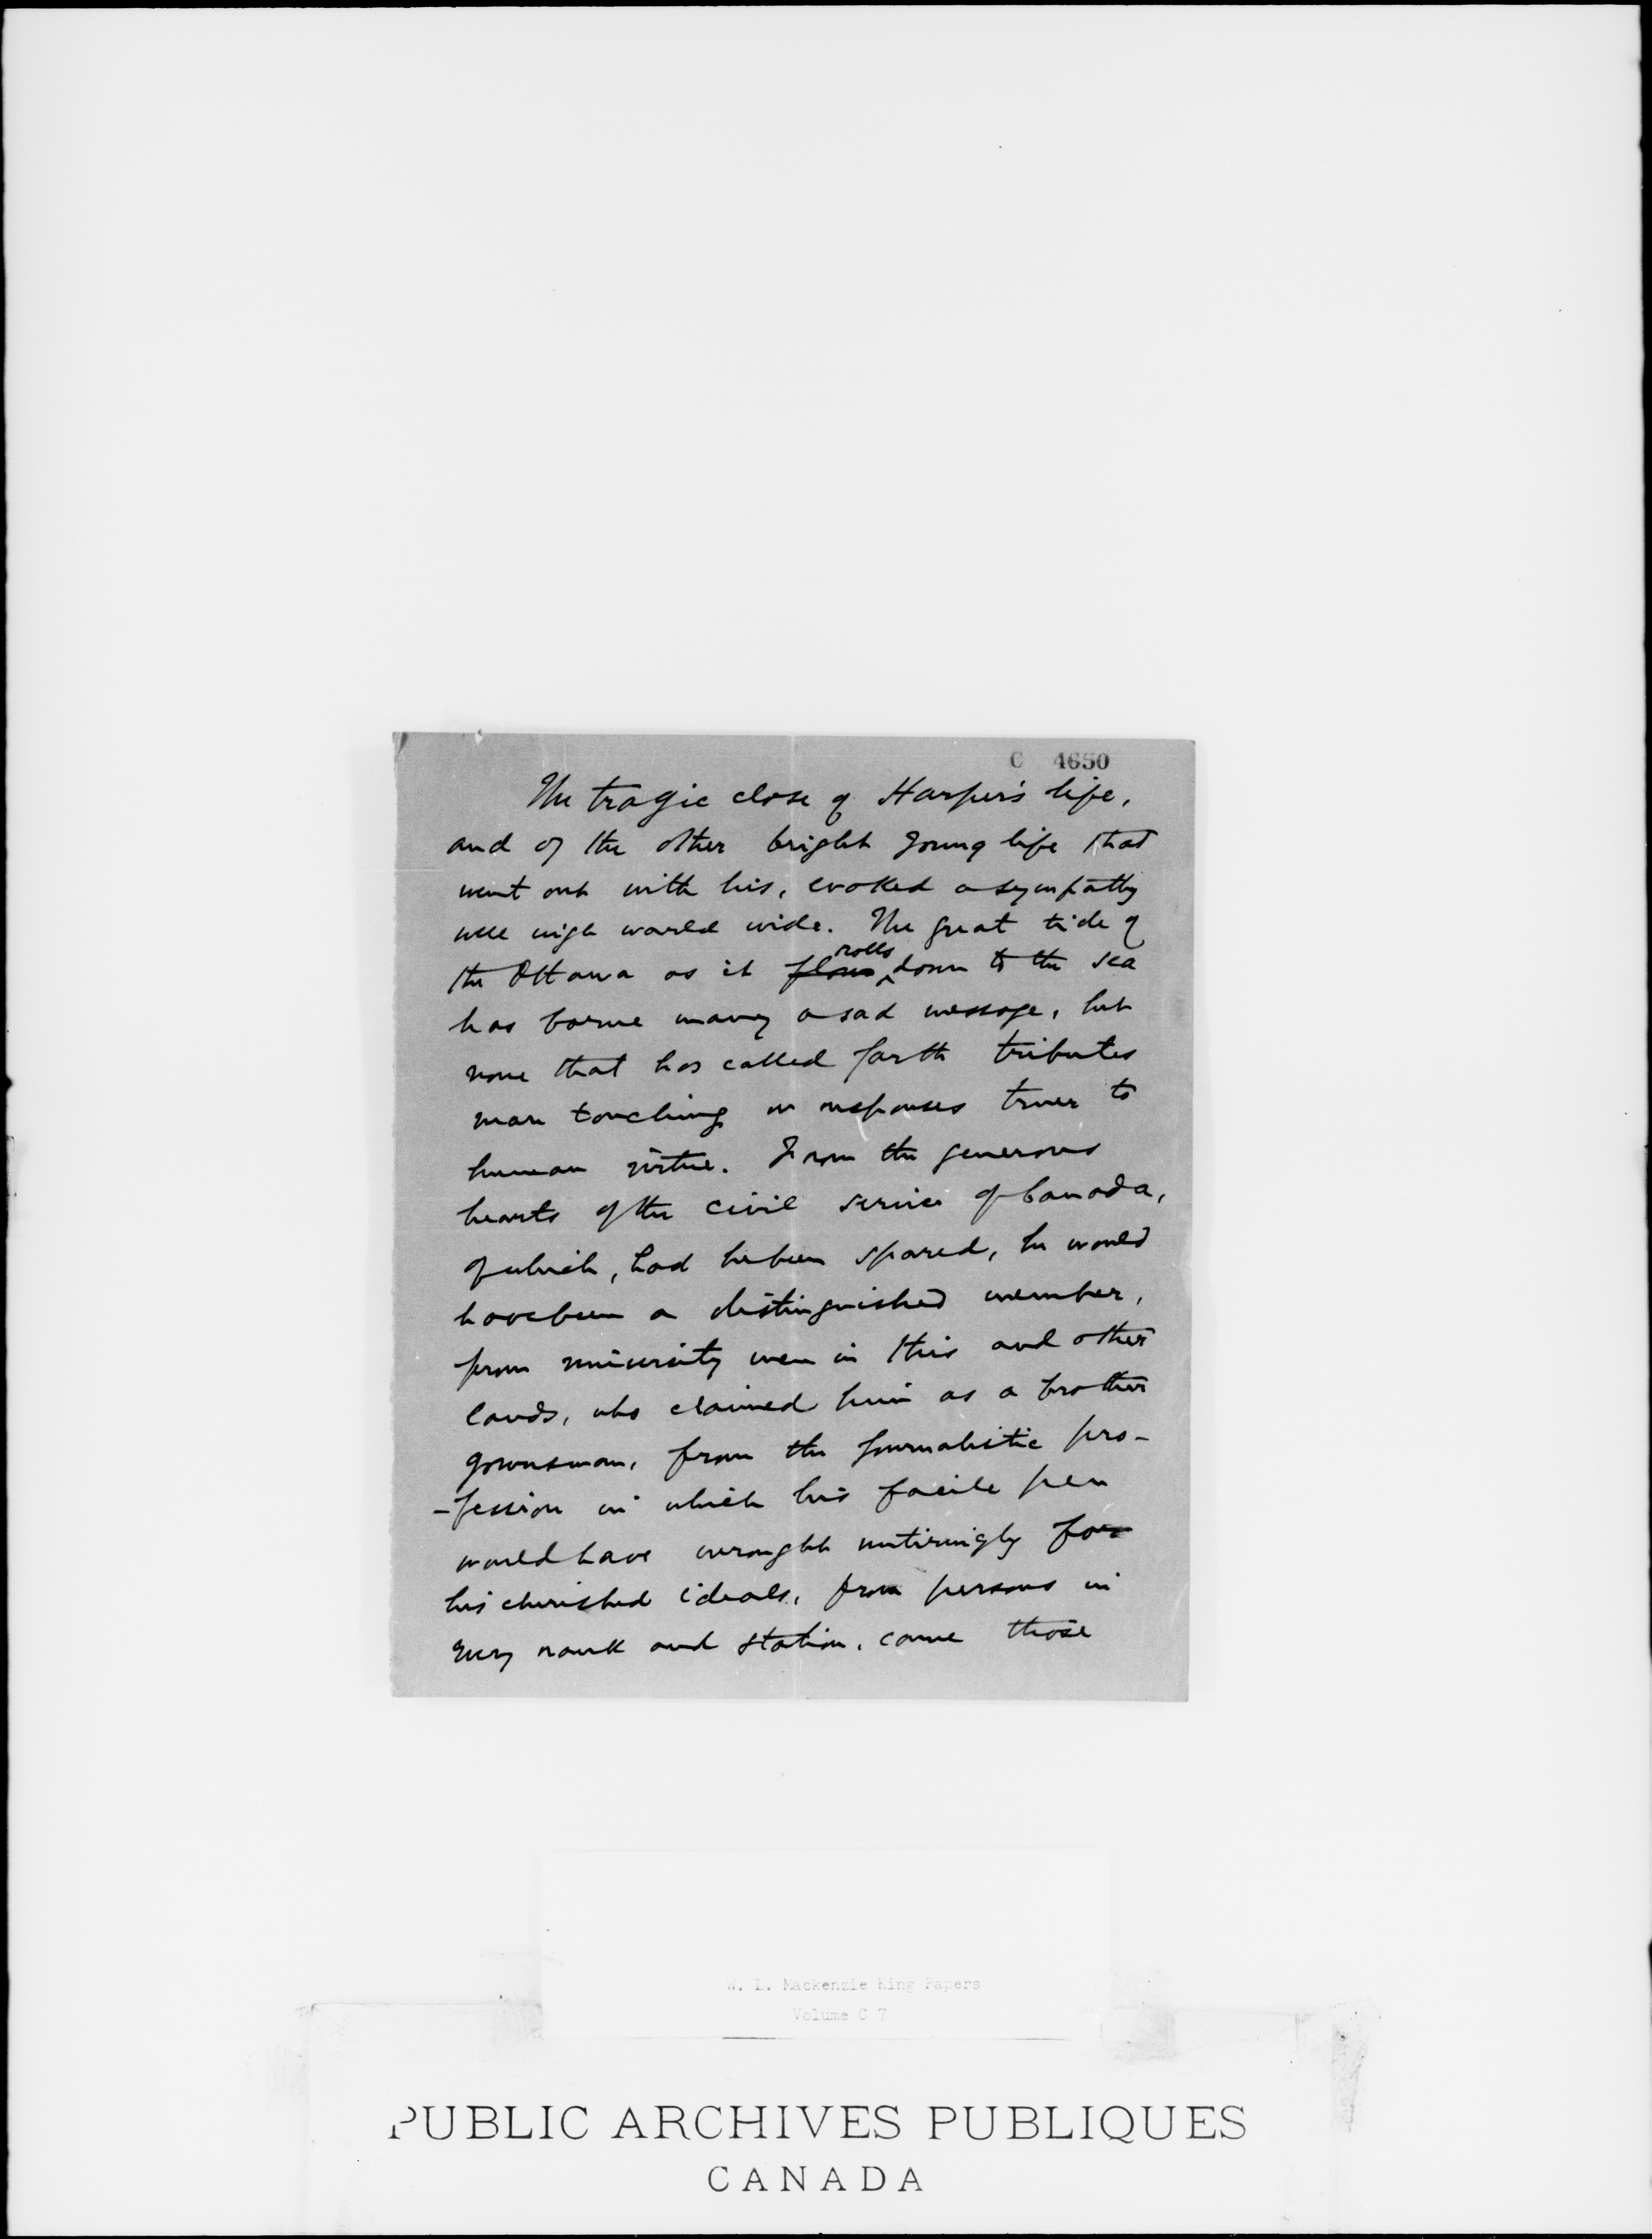 C 4650
The tragic close of Harper's life,
and of the other bright young life that
went out with his, evoked a sympathy
well nigh world wide. The great tide of
the Ottawa as it flows rolls down to the sea
has borne many a sad message, but
none that has called forth tributes
more touching or responses truer to
human virtue. From the generous
hearts of the civil service of Canada,
of which, had he been spared, he would
have been a distinguished member,
from university men in this and other
lands, who claimed him as a brother
gownsman, from the journalistic pro-
-fession in which his facile pen
would have wrought untiringly for
his cherished ideals, from persons in
every rank and station, came those
W. L. Mackenzie King Papers
Volume C 7
PUBLIC ARCHIVES PUBLIQUES
CANADA